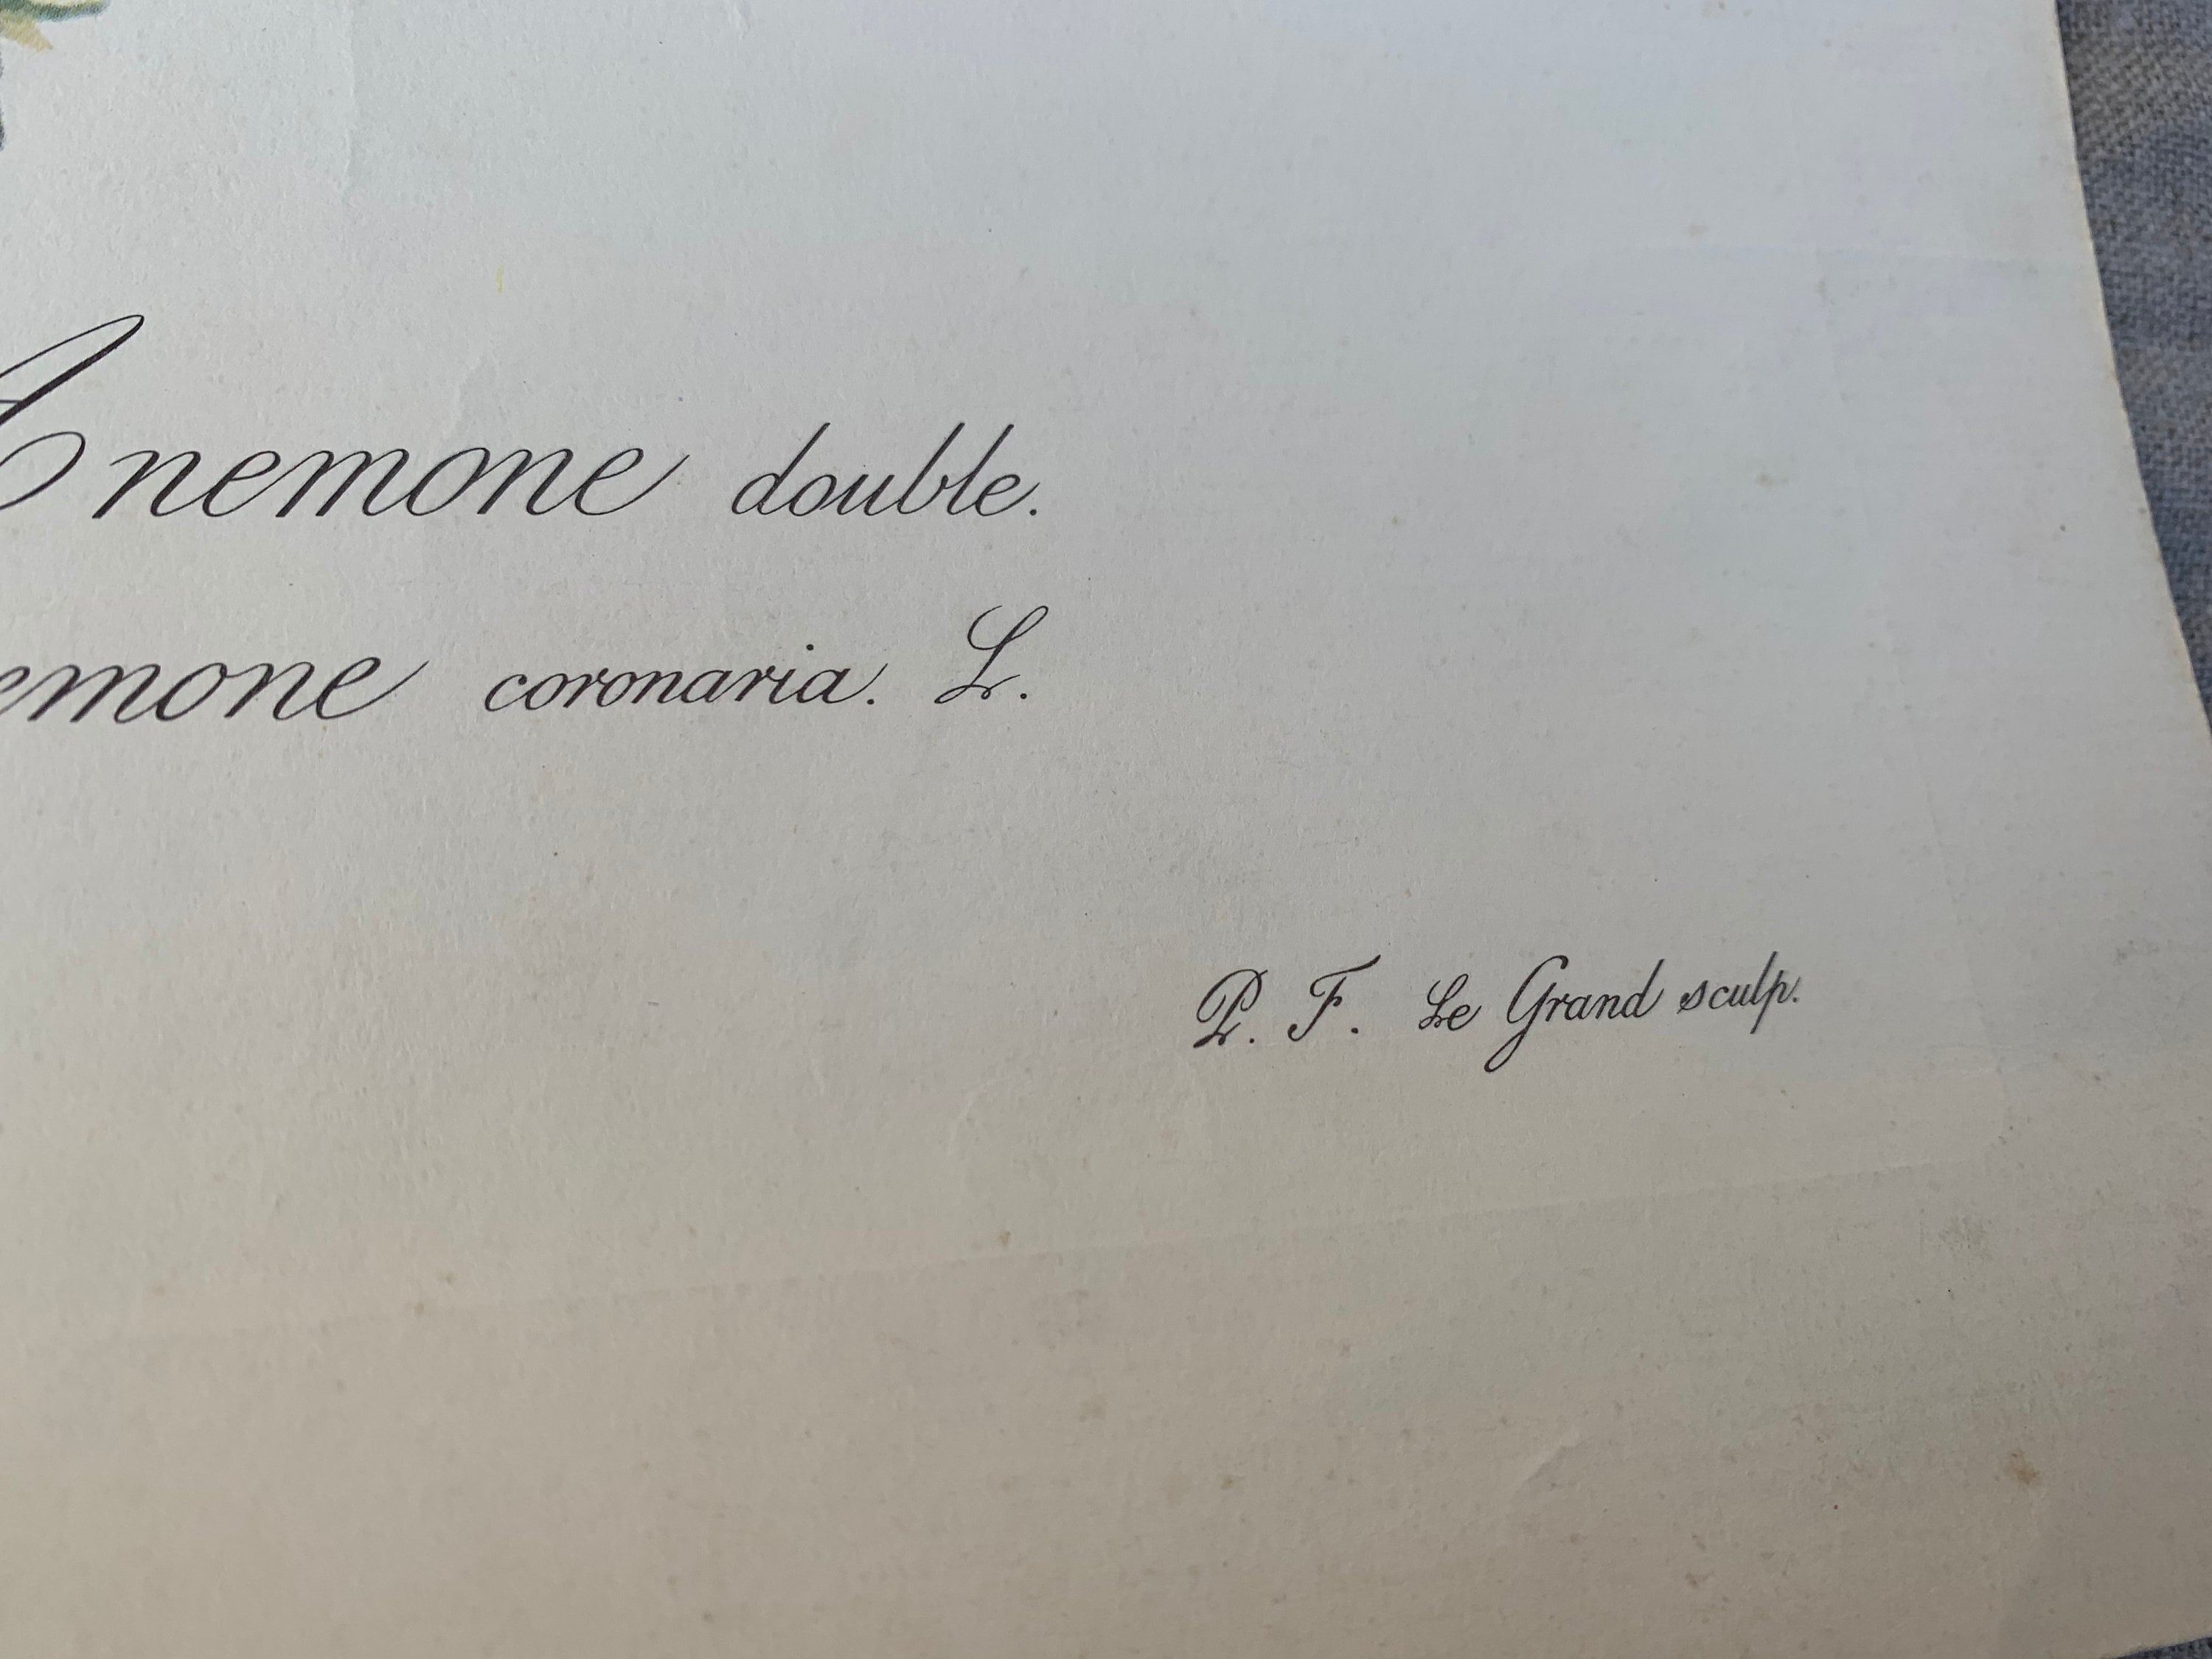 Anemone double.
emone coronaria. L.
P. F. Le Grand sculp.